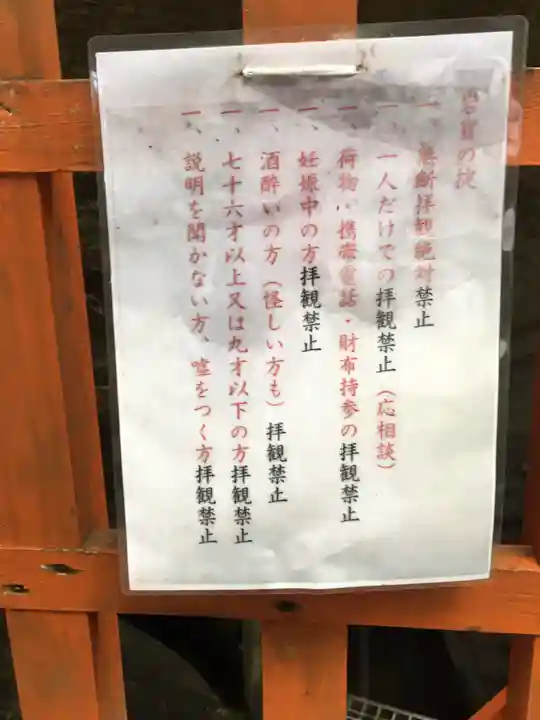 の掟
一、無断拝観絶対禁止
一、一人だけでの拝観禁止（応相談）
一、荷物、携帯電話・財布持参の拝観禁止
一、妊娠中の方拝観禁止
一、酒酔いの方（怪しい方も）拝観禁止
一、七十六才以上又は九才以下の方拝観禁止
一、説明を聞かない方、嘘をつく方拝観禁止